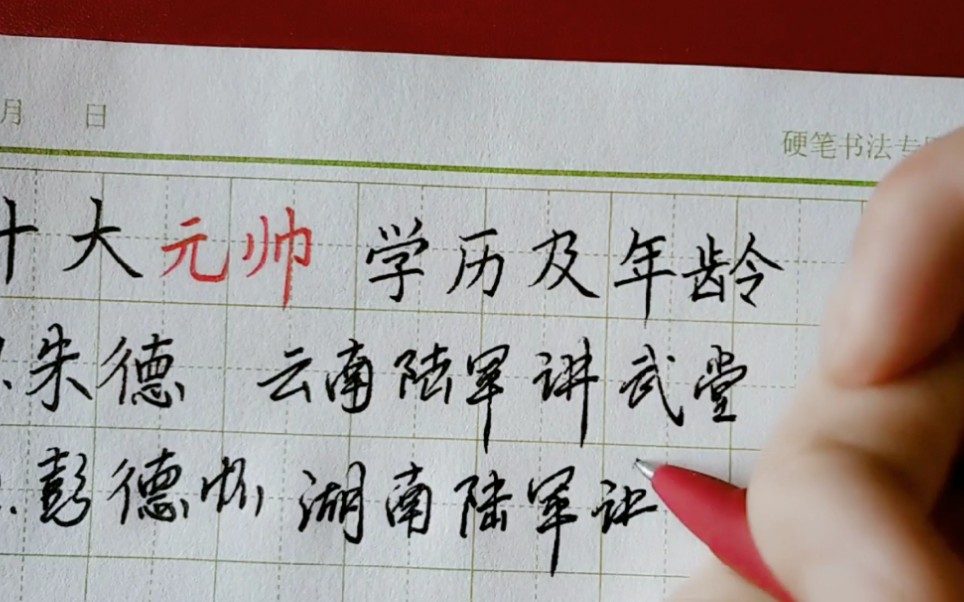 月 日
硬笔书法专
十大元帅 学历及年龄
.朱德 云南陆军讲武堂
.彭德怀 湖南陆军讲